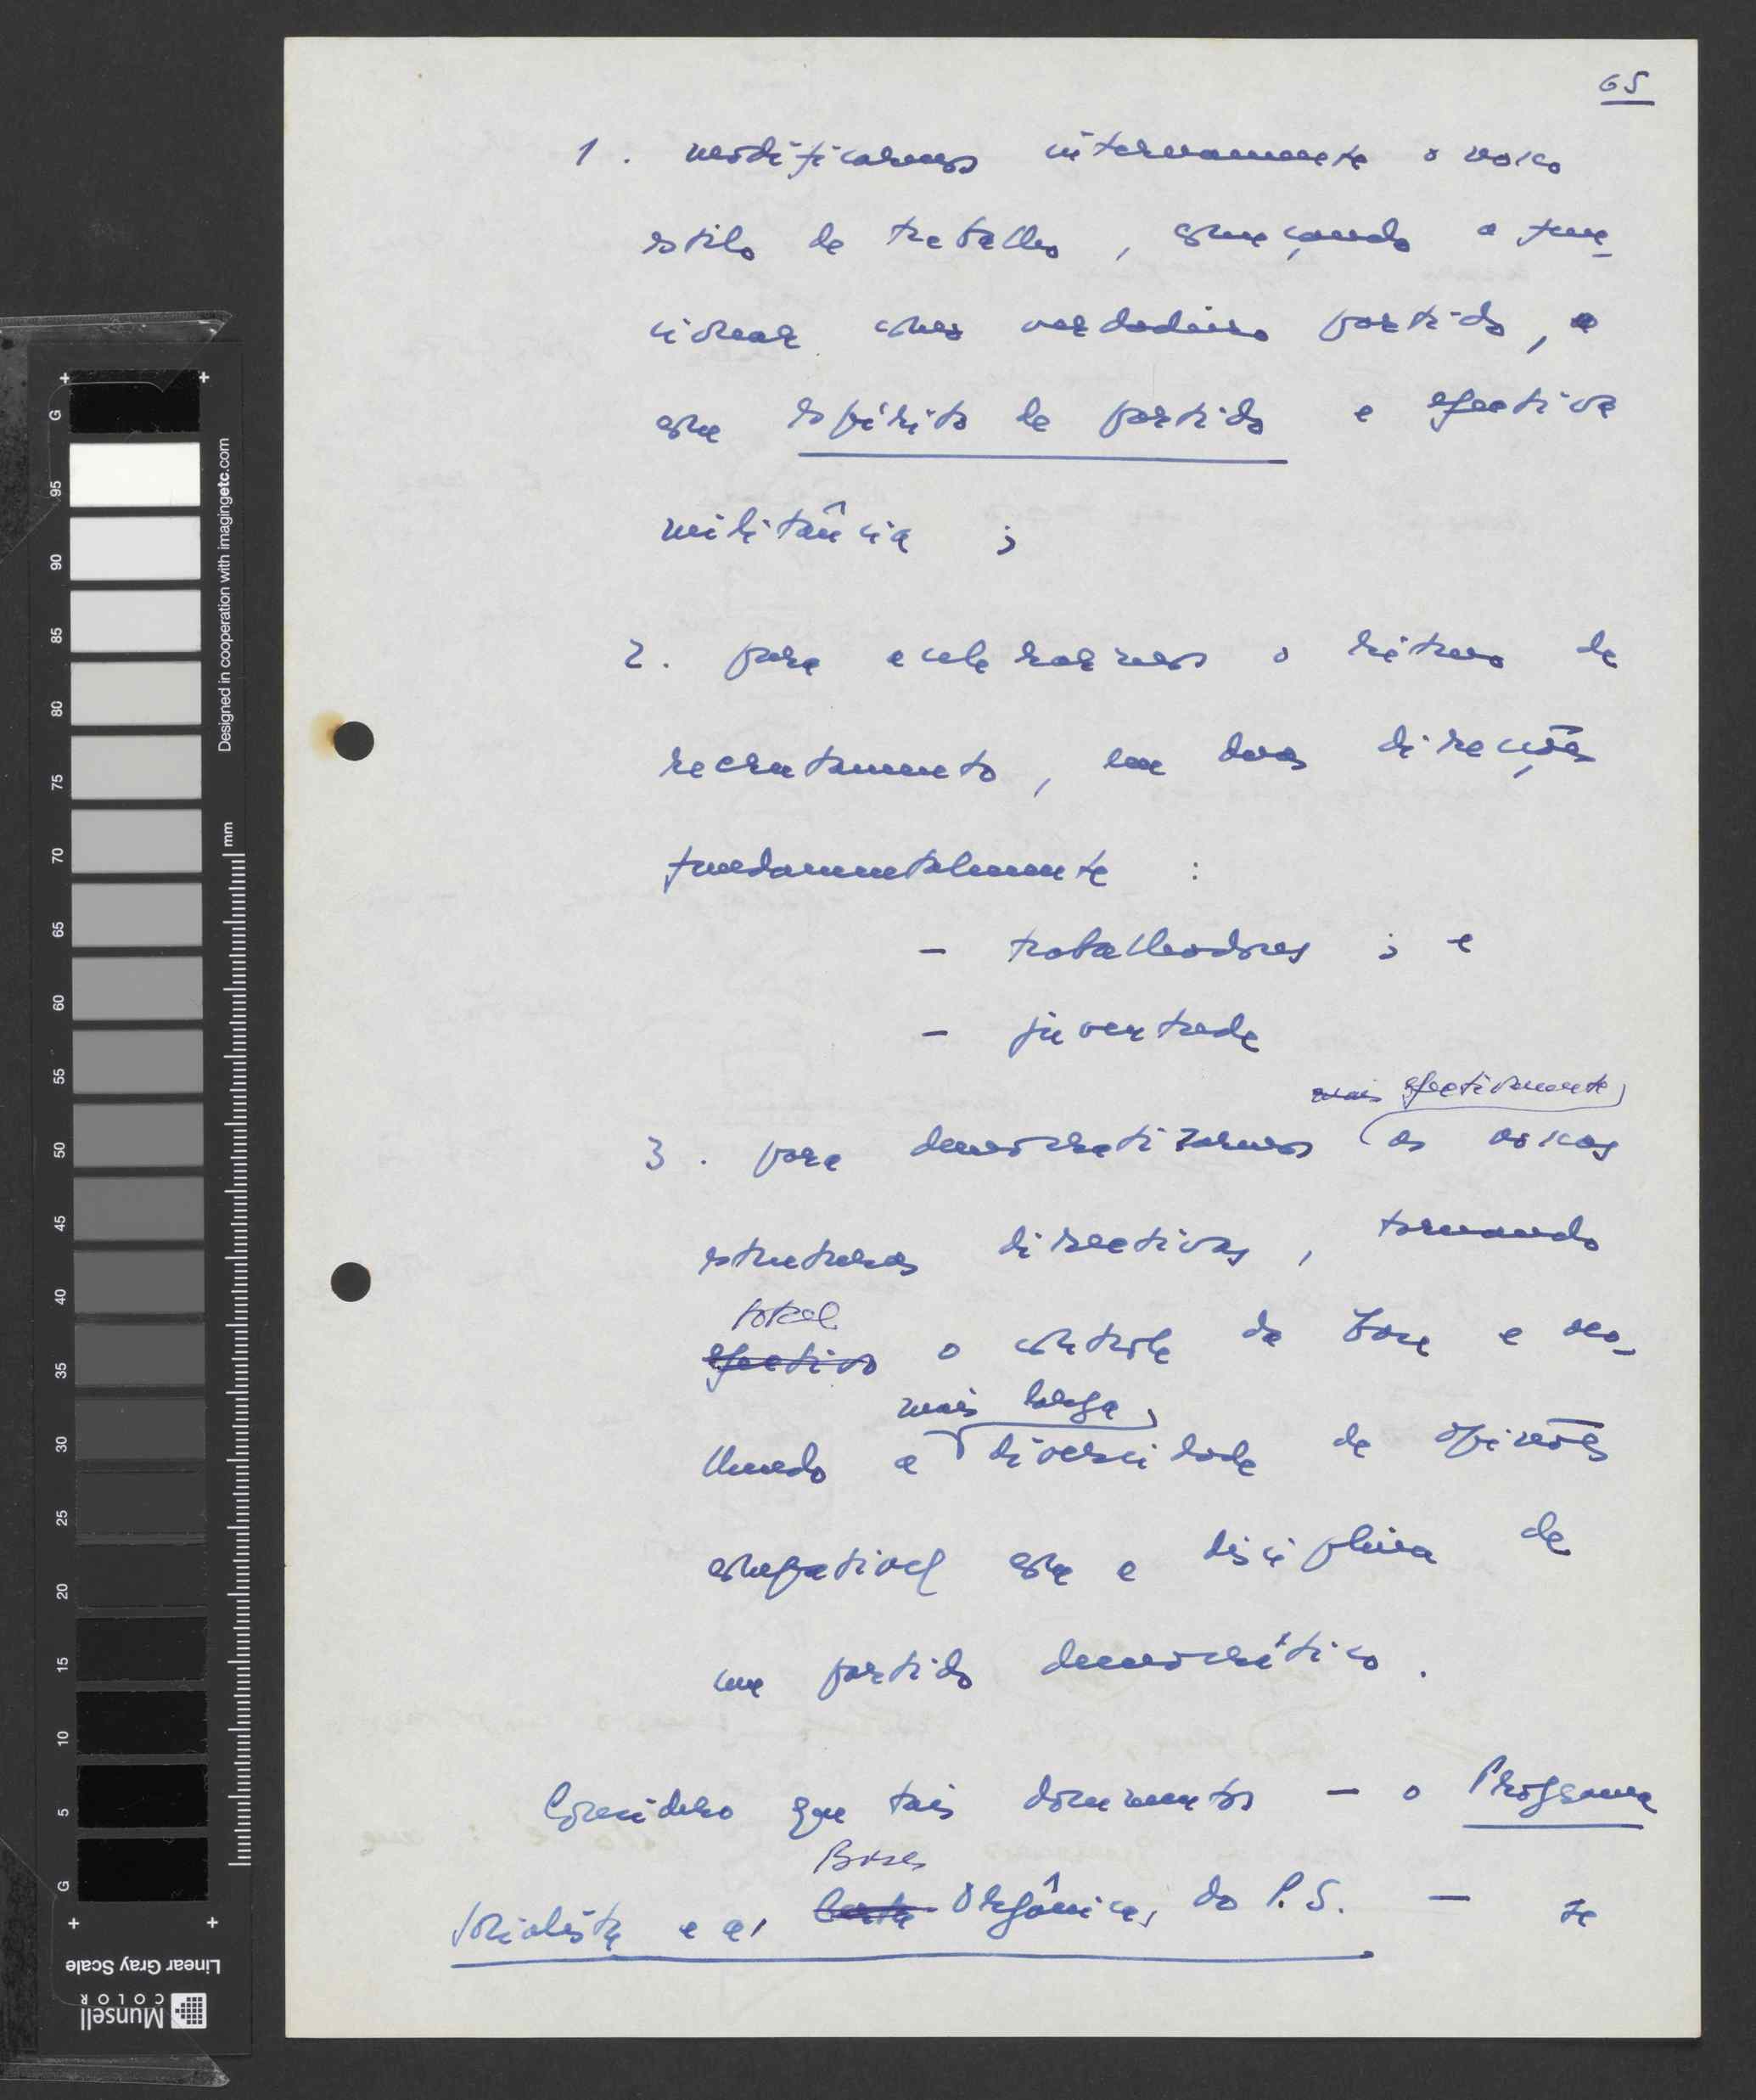 65
1. modificarmos internamente o nosso
estilo de trabalho, começando a fun-
cionar como verdadeiro partido, e
com espírito de partido e efectiva
militância ;
2. para acelerarmos o ritmo de
recrutamento, em duas direcções
fundamentalmente :
- trabalhadores ; e
- juventude
mais efectivamente
3. para democratizarmos as nossas
estruturas directivas, tornando
total
efectivo o controle da base e aco-
mais larga
lhendo a diversidade de opiniões
compatível com a disciplina de
um partido democrático.
Considero que tais documentos — o Programa
Bases
Socialista e as Carta Orgânicas do P.S. — se
G 95 90 85 80 75 70 65 60 55 50 45 40 35 30 25 20 15 10 5 G
Designed in cooperation with imagingetc.com
mm
Linear Gray Scale
Munsell
COLOR